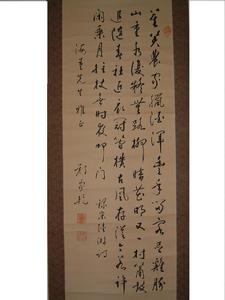 莫笑農家臘酒渾豐年留客足雞豚
山重水複疑無路柳暗花明又一村簫鼓
追隨春社近衣冠簡樸古風存從今若許
閒乘月拄杖無時夜叩門 錄宋陸游詩
先生雅正